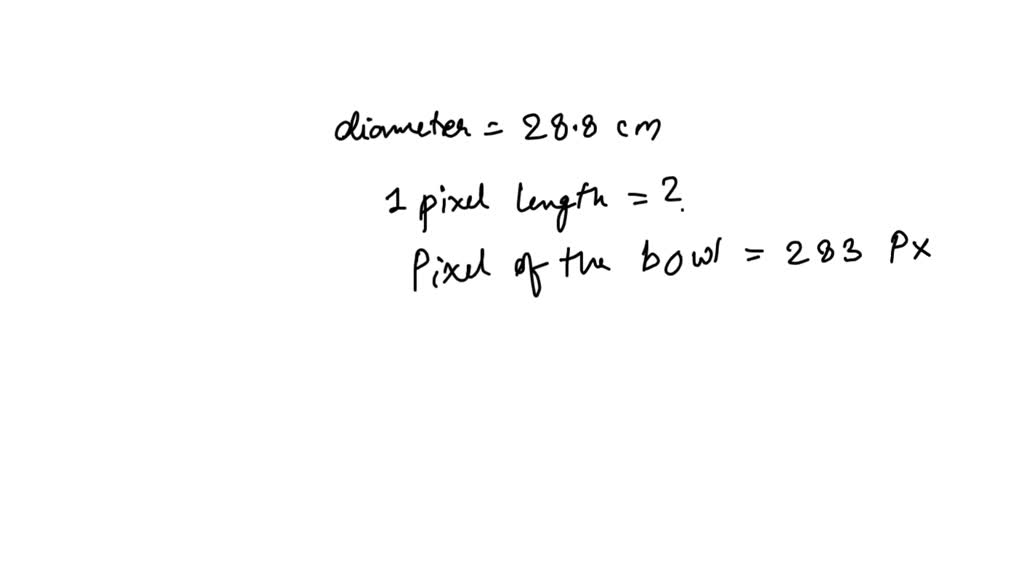 diameter = 28.8 cm
1 pixel length = ?
Pixel of the bowl = 283 Px